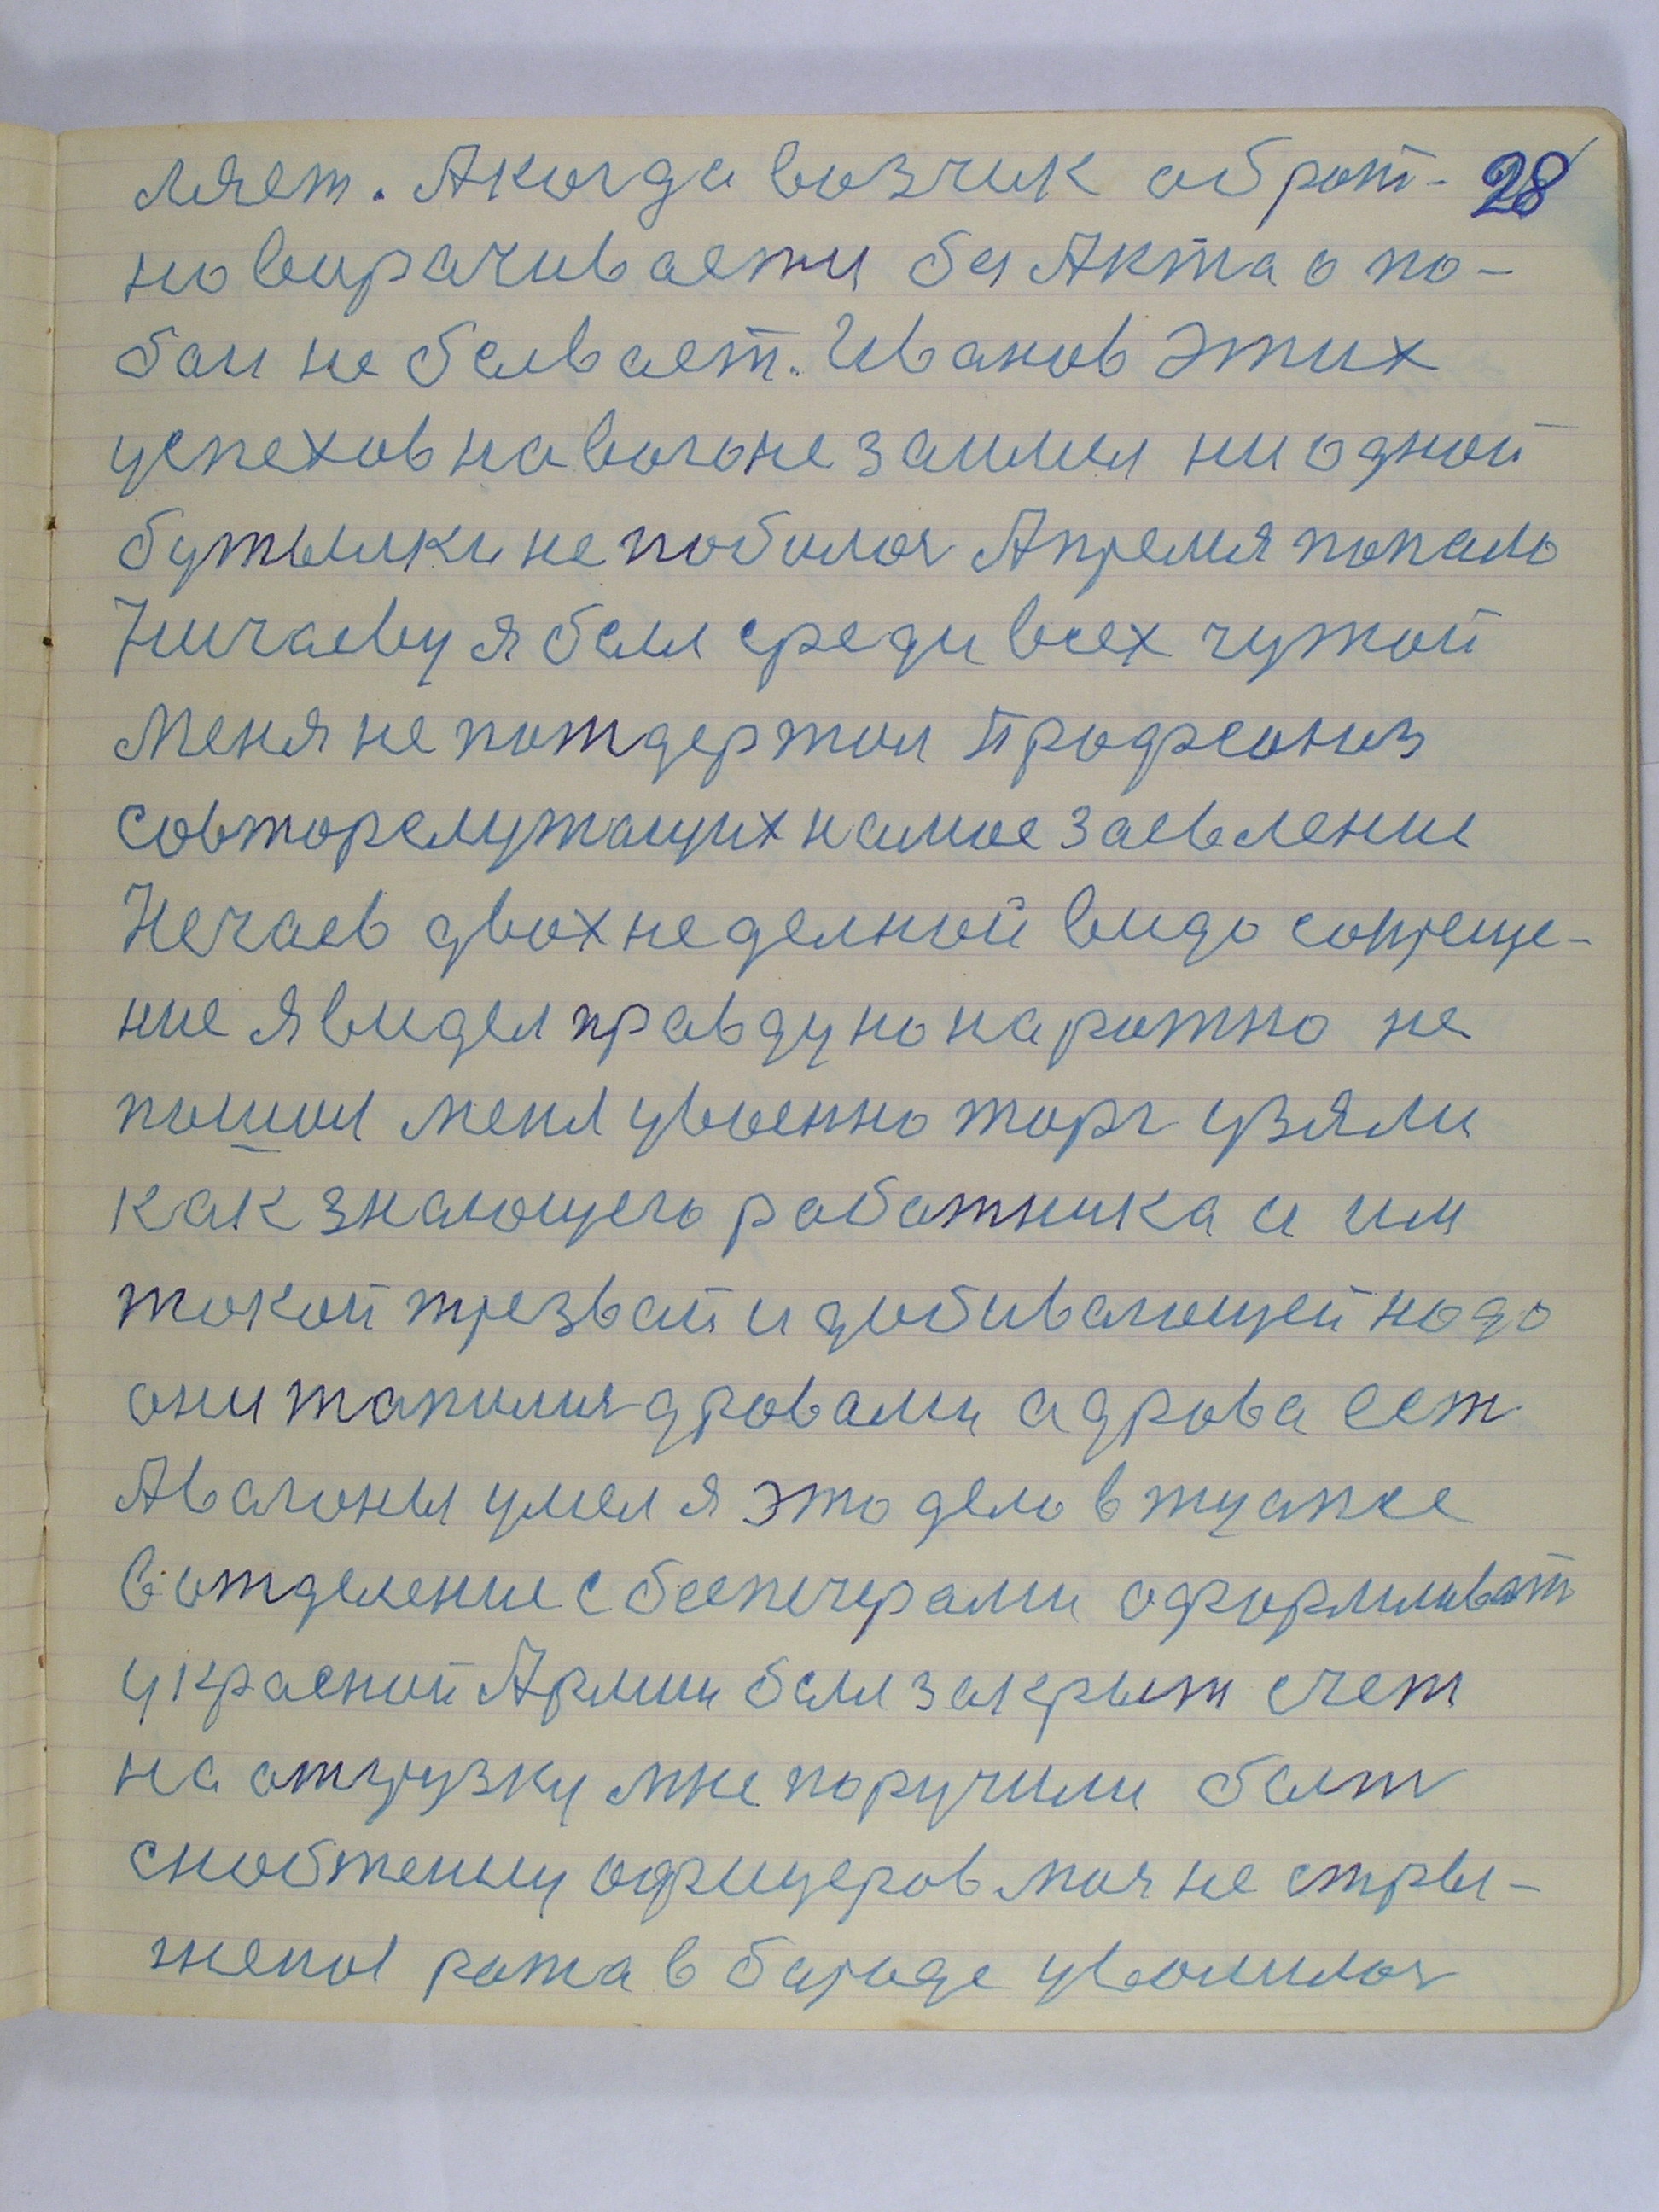 ляет. Акогда возчик оброт- 28
но вирачивает и бя Акта о по-
бои не бывает. Иванов этих
успехов на вогоне заимел ни одной
бутылки не побилоя Апремия попало
Ничаеву я был среди всех чужой
Меня не потдержал Профсоюз
совторслужащих намое заевление
Нечаев двохнеделной видо сопреще-
ние Явидел правду но наротно не
пошол меня увоенно торг узяли
как знающего работника и им
токой трезвай и добивающей надо
они тапилия дровами адрова ест
Авагоны умел я это дело втуапсе
в отделение с бсепечерами оформливат
укросной Армии был закрыт счет
на отгрузку мне поручили был
снобжению офицеров моя не стры-
жепоя рожа в бароде уволилоя